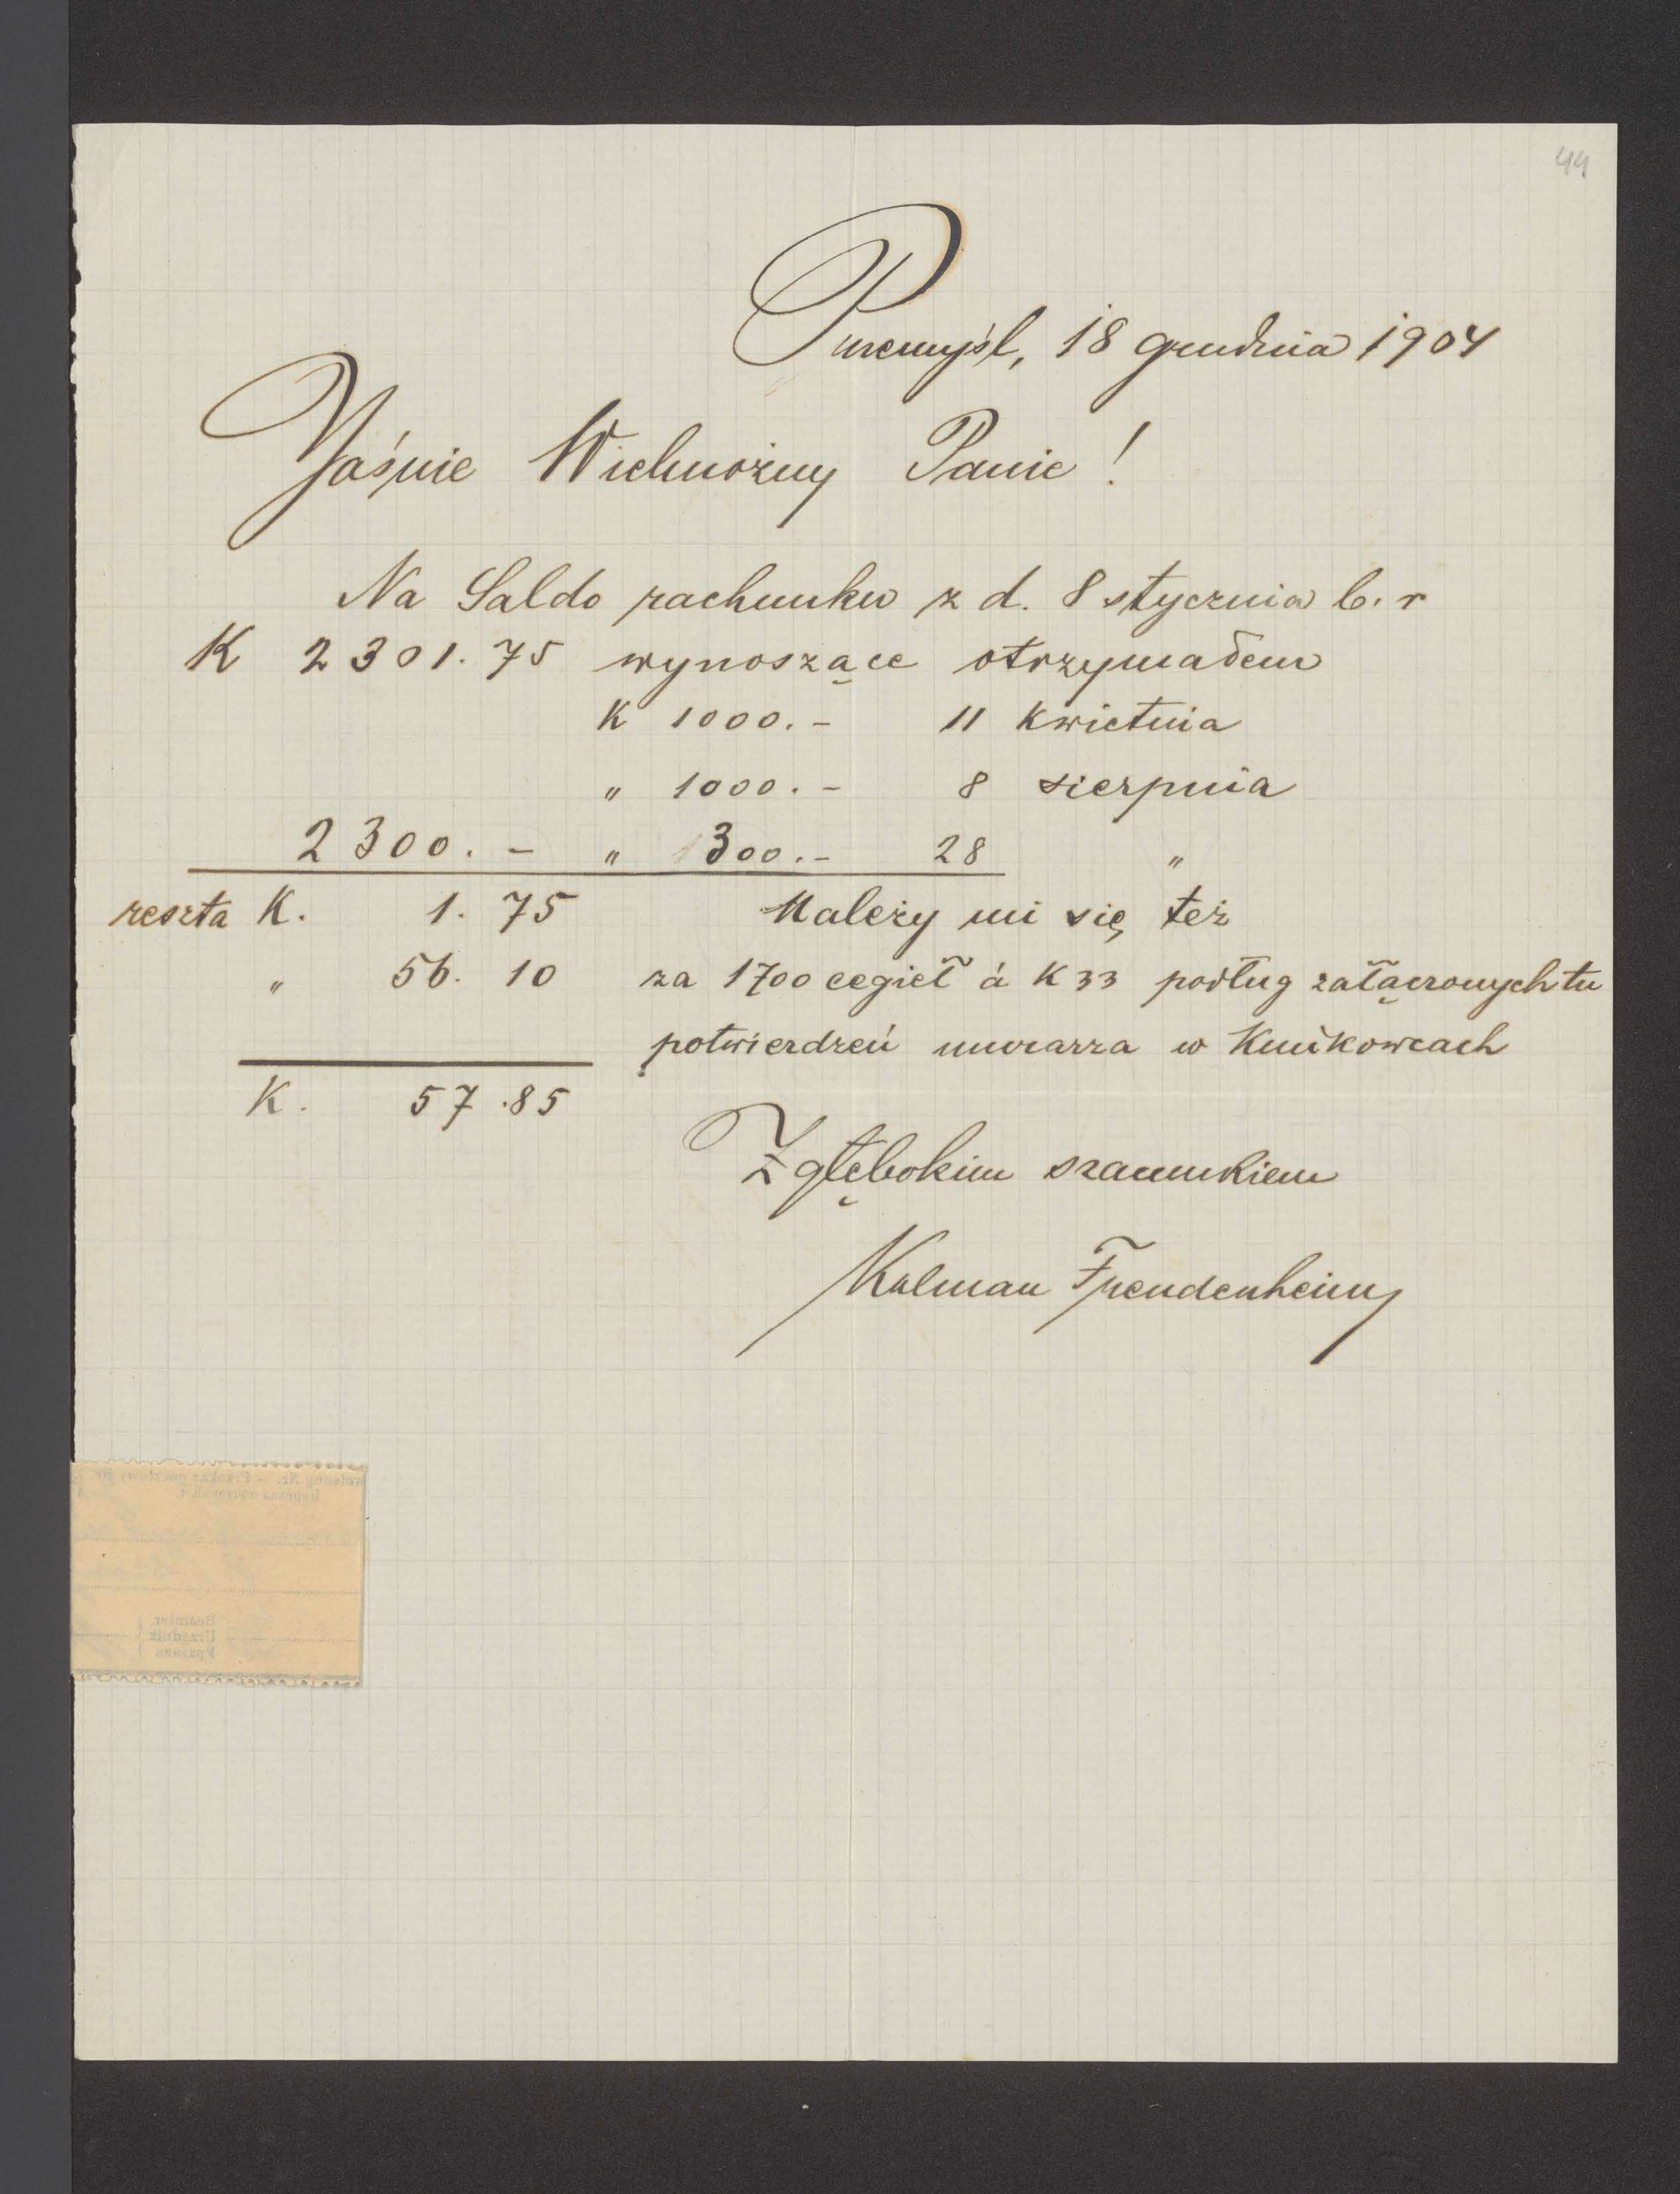 44
Przemyśl, 18 grudnia 1904
Jaśnie Wielmożny Panie!
Na Saldo rachunku z d. 8 stycznia b. r
K 2301.75 wynoszące otrzymałem
K 1000.- 11 kwietnia
" 1000.- 8 sierpnia
2300.- " 300.- 28 "
reszta K. 1.75 Należy mi się też
" 56.10 za 1700 cegieł á K 33 podług załączonych tu
potwierdzeń murarza w Kuńkowcach
K. 57.85
Z głębokim szacunkiem
Kalman Freudenheim
Beamter
Urzędnik